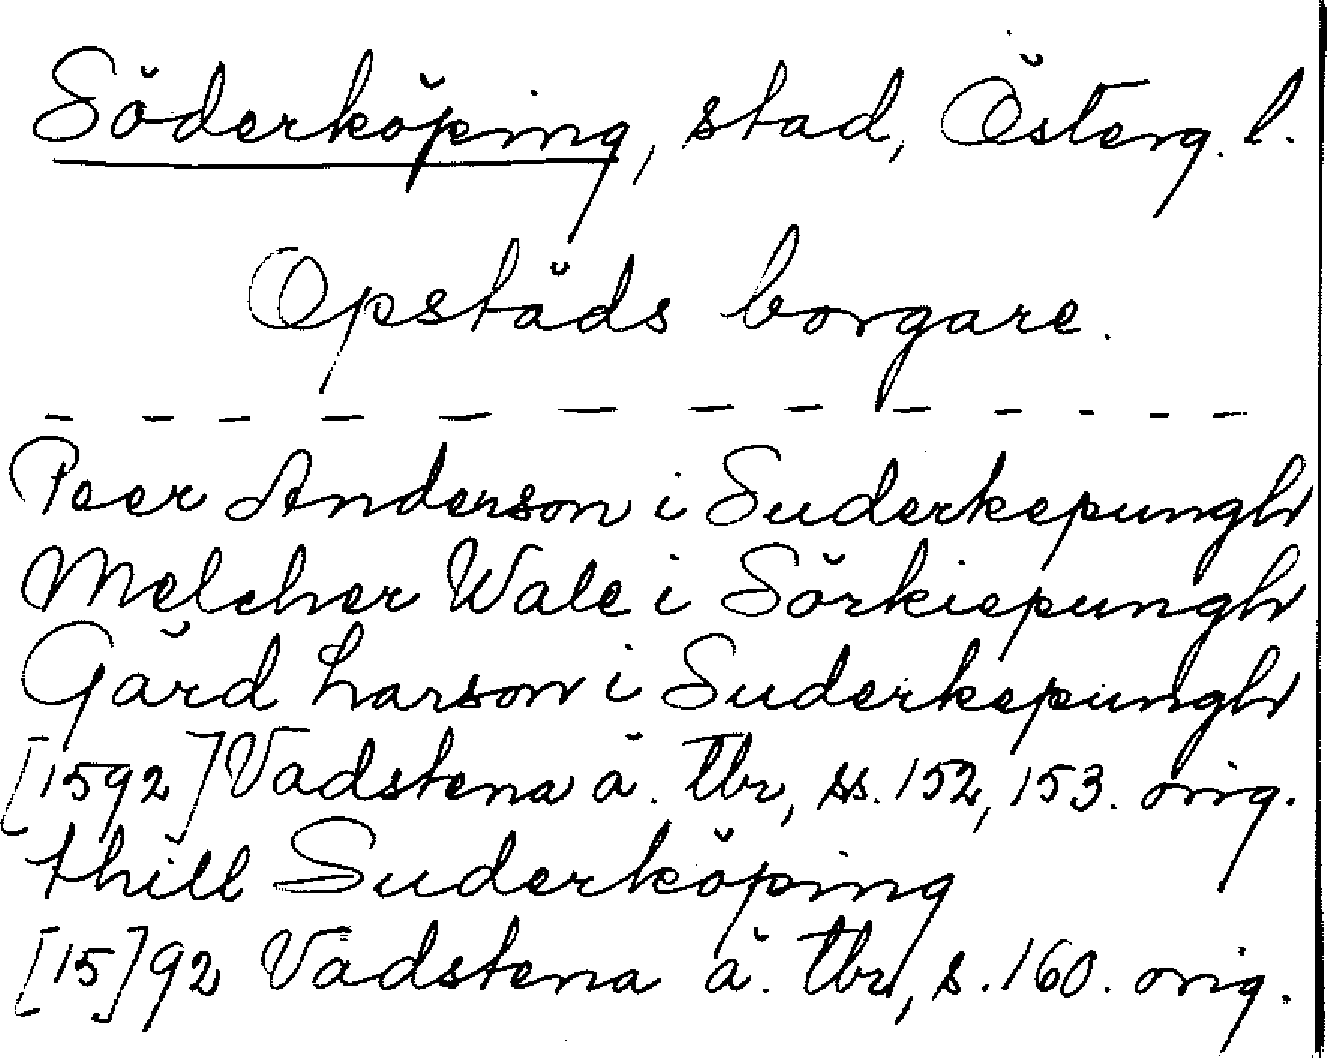 Söderköping, stad, Österg. l.
Opståds borgare.
Peer Anderson i Suderkepungh
Melcher Wale i Sörkiepungh
Gärd Larson i Suderkepungh
[1592] Vadstena ä. tbr, ss. 152, 153. orig.
thill Suderköping
[15]92 Vadstena ä. tbr, s. 160. orig.